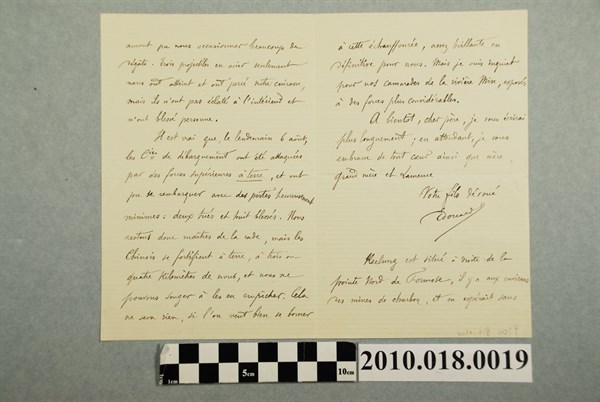 auront pu nous occasionner beaucoup de
dégâts. Trois projectiles en acier seulement
nous ont atteint et ont percé notre cuirasse,
mais ils n'ont pas éclaté à l'intérieur et
n'ont blessé personne.
Il est vrai que, le lendemain 6 août,
les Cies de débarquement ont été attaquées
par des forces supérieures à terre, et ont
pu se rembarquer avec des pertes heureusement
minimes : deux tués et huit blessés. Nous
restons donc maîtres de la rade, mais les
Chinois se fortifient à terre, à trois ou
quatre kilomètres de nous, et nous ne
pouvons songer à les en empêcher. Cela
ne sera rien, si l'on veut bien se borner
à cette échauffourée, assez brillante en
définitive pour nous. Mais je suis inquiet
pour nos camarades de la rivière Min, exposés
à des forces plus considérables.
A bientôt, cher père, je vous écrirai
plus longuement ; en attendant, je vous
embrasse de tout cœur ainsi que mère,
grand mère et Laurence
Votre fils dévoué
Edouard
Keelung est situé à droite de la
pointe Nord de Formose, il y a aux environs
des mines de charbon, et on espérait sans
1cm 5cm 10cm
2010.018.0019